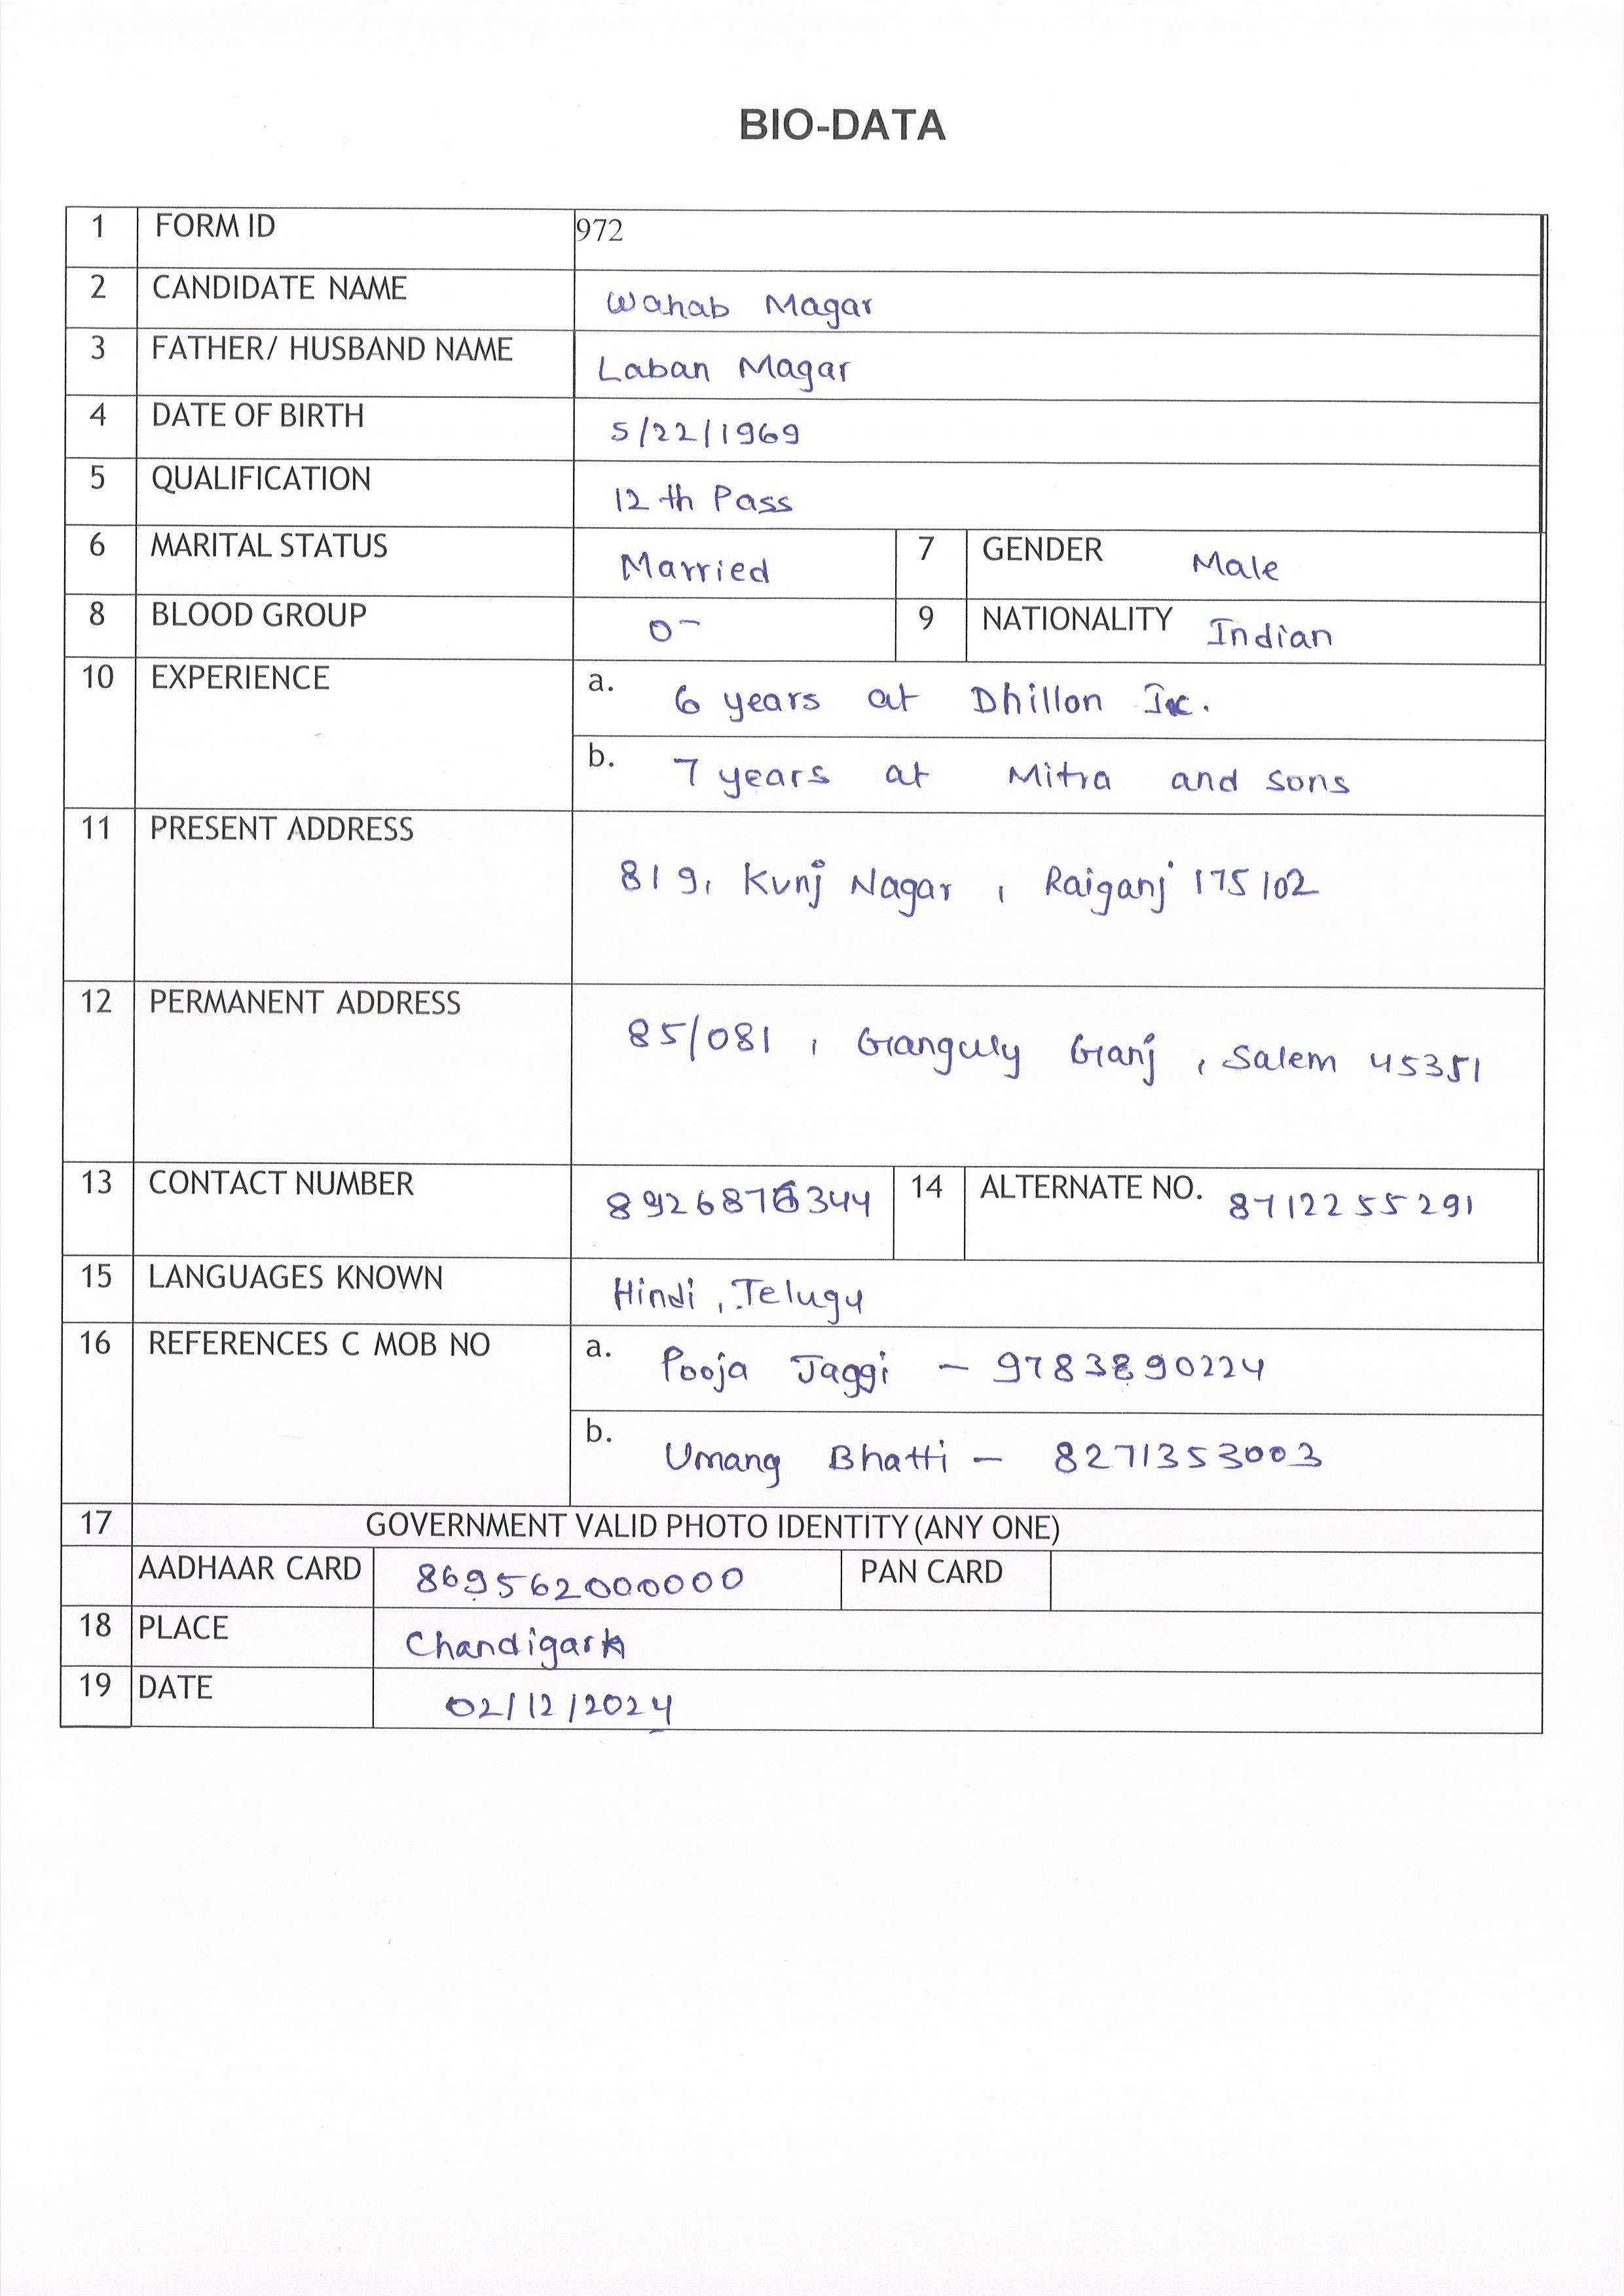 BIO-DATA
1 FORM ID 972
2 CANDIDATE NAME Wahab Magar
3 FATHER/ HUSBAND NAME Laban Magar
4 DATE OF BIRTH 5/22/1969
5 QUALIFICATION 12 th Pass
6 MARITAL STATUS Married 7 GENDER Male
8 BLOOD GROUP O- 9 NATIONALITY Indian
10 EXPERIENCE a. 6 years at Dhillon Inc.
b. 7 years at Mitra and sons
11 PRESENT ADDRESS 819, Kunj Nagar, Raiganj 175102
12 PERMANENT ADDRESS 85/081, Ganguly Ganj, Salem 45351
13 CONTACT NUMBER 8926876344 14 ALTERNATE NO. 8712255291
15 LANGUAGES KNOWN Hindi, Telugu
16 REFERENCES C MOB NO a. Pooja Jaggi - 9783890224
b. Umang Bhatti - 8271353003
17 GOVERNMENT VALID PHOTO IDENTITY (ANY ONE)
AADHAAR CARD 869562000000 PAN CARD
18 PLACE Chandigarh
19 DATE 02/12/2024